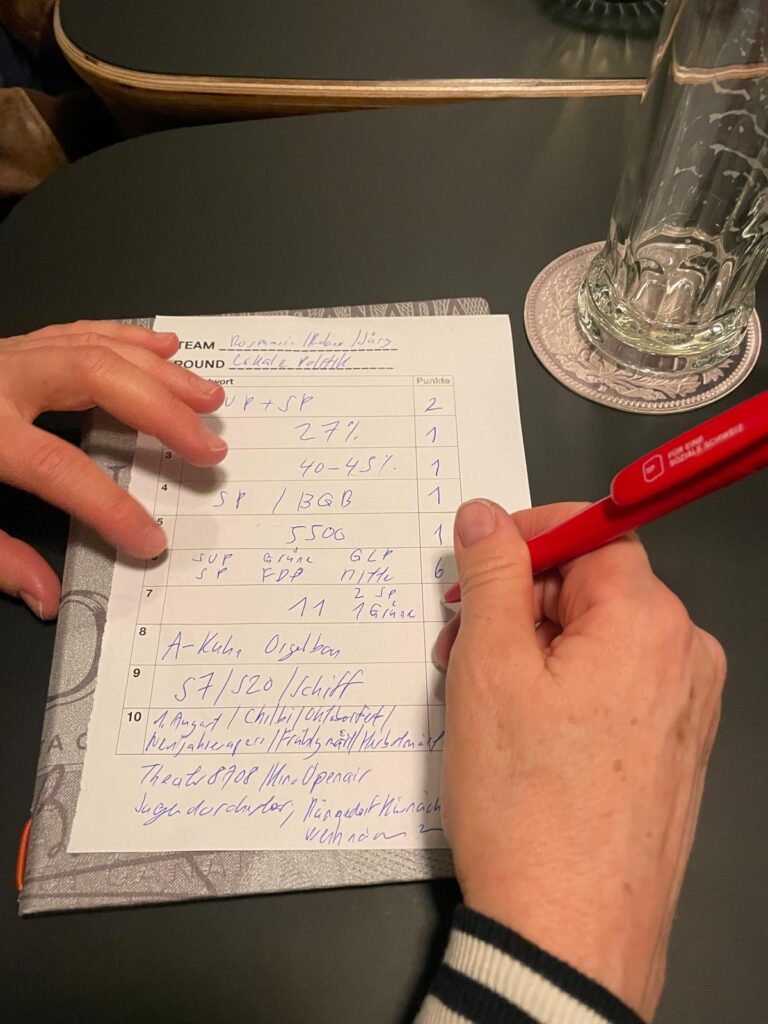 TEAM Rosmarie / / Jürg
ROUND Lokale Politik
wort Punkte
VP + SP 2
27% 1
3 40-45% 1
4 SP / BGB 1
5 5500 1
SVP Grüne GLP
SP FDP Mitte 6
7 2 SP
11 1 Grüne
8 A- Kuhn Orgelbau
9 S7/S20/Schiff
10 1. August / Chilbi / /
Neujahrsapero / / Herbstmärt
Theater 8708 / Kino Openair
Jugendorchester,
2
SP FÜR EINE
SOZIALE SCHWEIZ